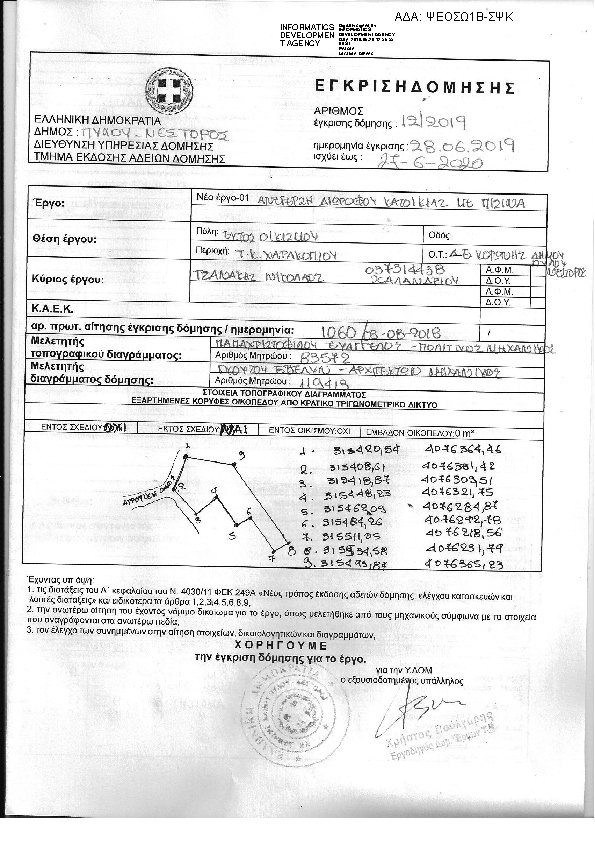 ΑΔΑ: ΨΕΟΣΩ1Β-ΣΨΚ
INFORMATICS
DEVELOPMEN
T AGENCY
ΕΛΛΗΝΙΚΗ ΔΗΜΟΚΡΑΤΙΑ
ΔΗΜΟΣ : ΠΥΛΟΥ - ΝΕΣΤΟΡΟΣ
ΔΙΕΥΘΥΝΣΗ ΥΠΗΡΕΣΙΑΣ ΔΟΜΗΣΗΣ
ΤΜΗΜΑ ΕΚΔΟΣΗΣ ΑΔΕΙΩΝ ΔΟΜΗΣΗΣ
ΕΓΚΡΙΣΗΔΟΜΗΣΗΣ
ΑΡΙΘΜΟΣ
έγκρισης δόμησης : 12/2019
ημερομηνία έγκρισης : 28.06.2019
ισχύει έως : 27-6-2020
Έργο: Νέο έργο-01 ΑΝΕΓΕΡΣΗ ΔΙΩΡΟΦΟΥ ΚΑΤΟΙΚΙΑΣ ΜΕ ΠΙΣΙΝΑ
Θέση έργου: Πόλη: ΕΚΤΟΣ ΟΙΚΙΣΜΟΥ Οδός
Περιοχή: Τ.Κ. ΧΑΡΑΚΟΠΙΟΥ Ο.Τ.: Δ.Ε. ΚΟΡΩΝΗΣ ΔΗΜΟΥ ΠΥΛΟΥ ΝΕΣΤΟΡΟΣ
Κύριος έργου: ΤΖΑΝΑΚΗΣ ΝΙΚΟΛΑΟΣ 037314438 Α.Φ.Μ.
ΧΑΛΑΝΔΡΙΟΥ Δ.Ο.Υ.
Α.Φ.Μ.
Δ.Ο.Υ.
Κ.Α.Ε.Κ.
αρ. πρωτ. αίτησης έγκρισης δόμησης / ημερομηνία: 1060/8-08-2018 /
Μελετητής
τοπογραφικού διαγράμματος: ΕΥΑΓΓΕΛΟΣ - ΠΟΛΙΤΙΚΟΣ ΜΗΧΑΝΙΚΟΣ
Αριθμός Μητρώου : 83572
Μελετητής
διαγράμματος δόμησης: - ΑΡΧΙΤΕΚΤΩΝ ΜΗΧΑΝΙΚΟΣ
Αριθμός Μητρώου : 119419
ΣΤΟΙΧΕΙΑ ΤΟΠΟΓΡΑΦΙΚΟΥ ΔΙΑΓΡΑΜΜΑΤΟΣ
ΕΞΑΡΤΗΜΕΝΕΣ ΚΟΡΥΦΕΣ ΟΙΚΟΠΕΔΟΥ ΑΠΟ ΚΡΑΤΙΚΟ ΤΡΙΓΩΝΟΜΕΤΡΙΚΟ ΔΙΚΤΥΟ
ΕΝΤΟΣ ΣΧΕΔΙΟΥ ΕΚΤΟΣ ΣΧΕΔΙΟΥ ΝΑΙ ΕΝΤΟΣ ΟΙΚΙΣΜΟΥ:ΟΧΙ ΕΜΒΑΔΟΝ ΟΙΚΟΠΕΔΟΥ:0 m²
1. 315420,54 4076364,46
2. 315408,61 4076381,42
3. 315418,87 4076303,51
4. 315448,23 4076321,75
5. 4076284,87
6. 315484,26 4076292,78
7. 315511,05 4076218,56
8. 4076231,79
9. 4076365,23
Έχοντας υπ όψη:
1. τις διατάξεις του Α΄ κεφαλαίου του Ν. 4030/11 ΦΕΚ 249Α «Νέος τρόπος έκδοσης αδειών δόμησης, ελέγχου κατασκευών και
λοιπές διατάξεις» και ειδικότερα τα άρθρα 1,2,3,4,5,6,8,9,
2. την ανωτέρω αίτηση του έχοντος νόμιμο δικαίωμα για το έργο, όπως μελετήθηκε από τους μηχανικούς σύμφωνα με τα στοιχεία
που αναγράφονται στα ανωτέρω πεδία,
3. τον έλεγχο των συνημμένων στην αίτηση στοιχείων, δικαιολογητικών και διαγραμμάτων,
ΧΟΡΗΓΟΥΜΕ
την έγκριση δόμησης για το έργο.
για την Υ.ΔΟΜ
ο εξουσιοδοτημένος υπάλληλος